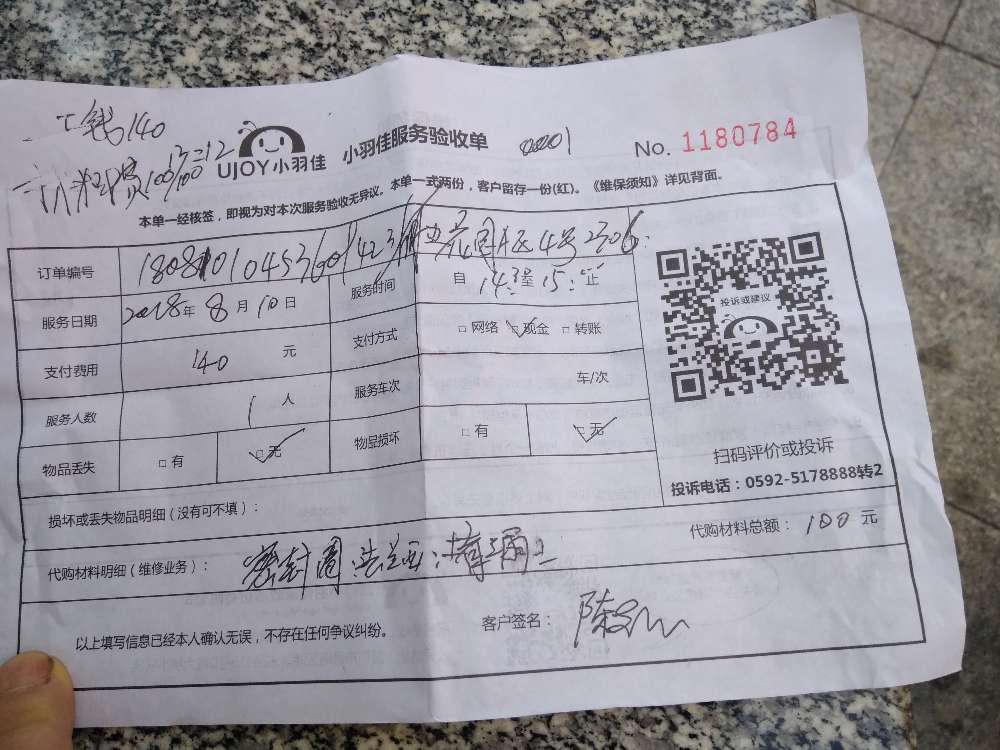 工钱140
UJOY小羽佳 小羽佳服务验收单 No. 1180784
本单一经核签，即视为对本次服务验收无异议。本单一式两份，客户留存一份(红)。《维保须知》详见背面。
订单编号
服务日期 2018年8月10日 服务时间 自 至
支付费用 140 元 支付方式 □网络 □现金 □转账
服务人数 1 人 服务车次 车/次
物品丢失 □有 □无 物品损坏 □有 □无
投诉或建议
扫码评价或投诉
投诉电话：0592-5178888转2
损坏或丢失物品明细（没有可不填）：
代购材料总额：100元
代购材料明细（维修业务）： 密封圈 法兰
以上填写信息已经本人确认无误，不存在任何争议纠纷。 客户签名：